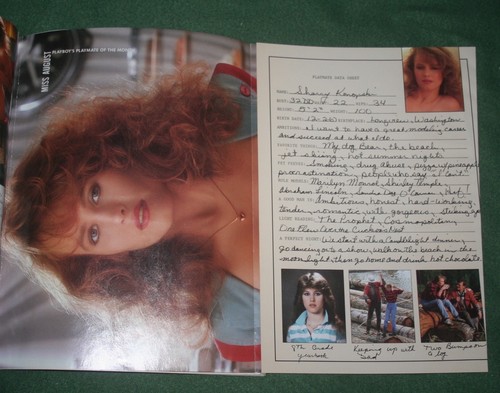 MISS AUGUST
PLAYBOY'S PLAYMATE OF THE MONTH
PLAYMATE DATA SHEET
NAME: Sherry
BUST: 32 WAIST: 22 HIPS: 34
HEIGHT: 5' 2" WEIGHT: 100
BIRTH DATE: BIRTHPLACE: Longview, Washington
AMBITIONS: I want to have a great modeling career
and succeed at what I do.
My dog Bear, the beach,
jet skiing, hot summer nights
Smoking, drug abuse, pizza w/pineapple
procrastination, people who say "I can't"
Marilyn Monroe, Shirley Temple,
Abraham Lincoln, Sandra Day O'Connor, Hef
Ambitious, honest, hard-working,
tender, romantic with gorgeous,
The Prophet, Cosmopolitan,
One Flew Over the Cuckoo's Nest
A PERFECT We start with a Candlelight dinner,
go dancing or to a show, walk on the beach in the
moonlight, then go home and drink hot chocolate.
8th Grade
yearbook
Keeping up with
"Dad"
Two Bumps on
a log